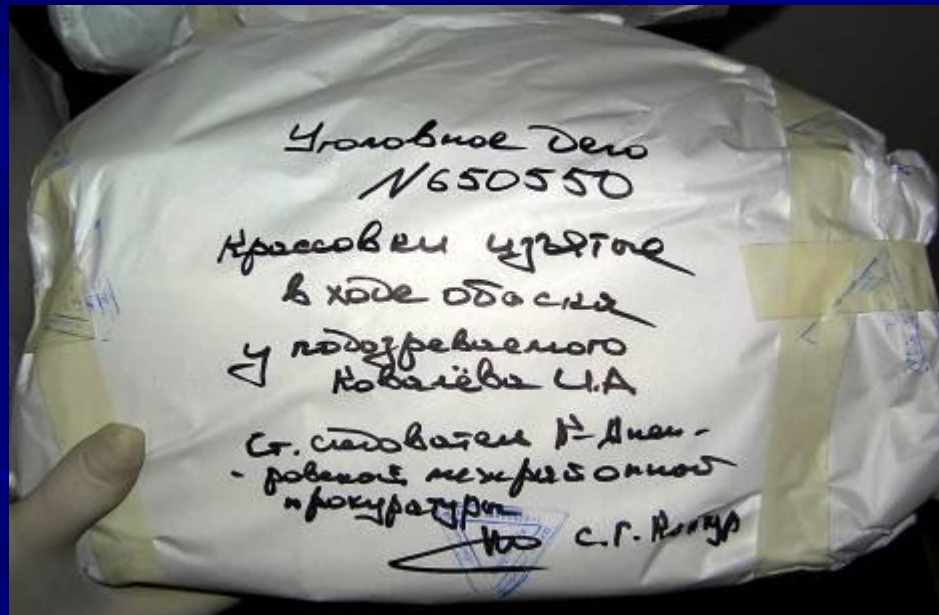 Уголовное дело
N650550
Кроссовки изъятые
в ходе обыска
у подозреваемого
Ковалёва И.А
Ст. следователь
межрайонной
прокуратуры
С.Г.